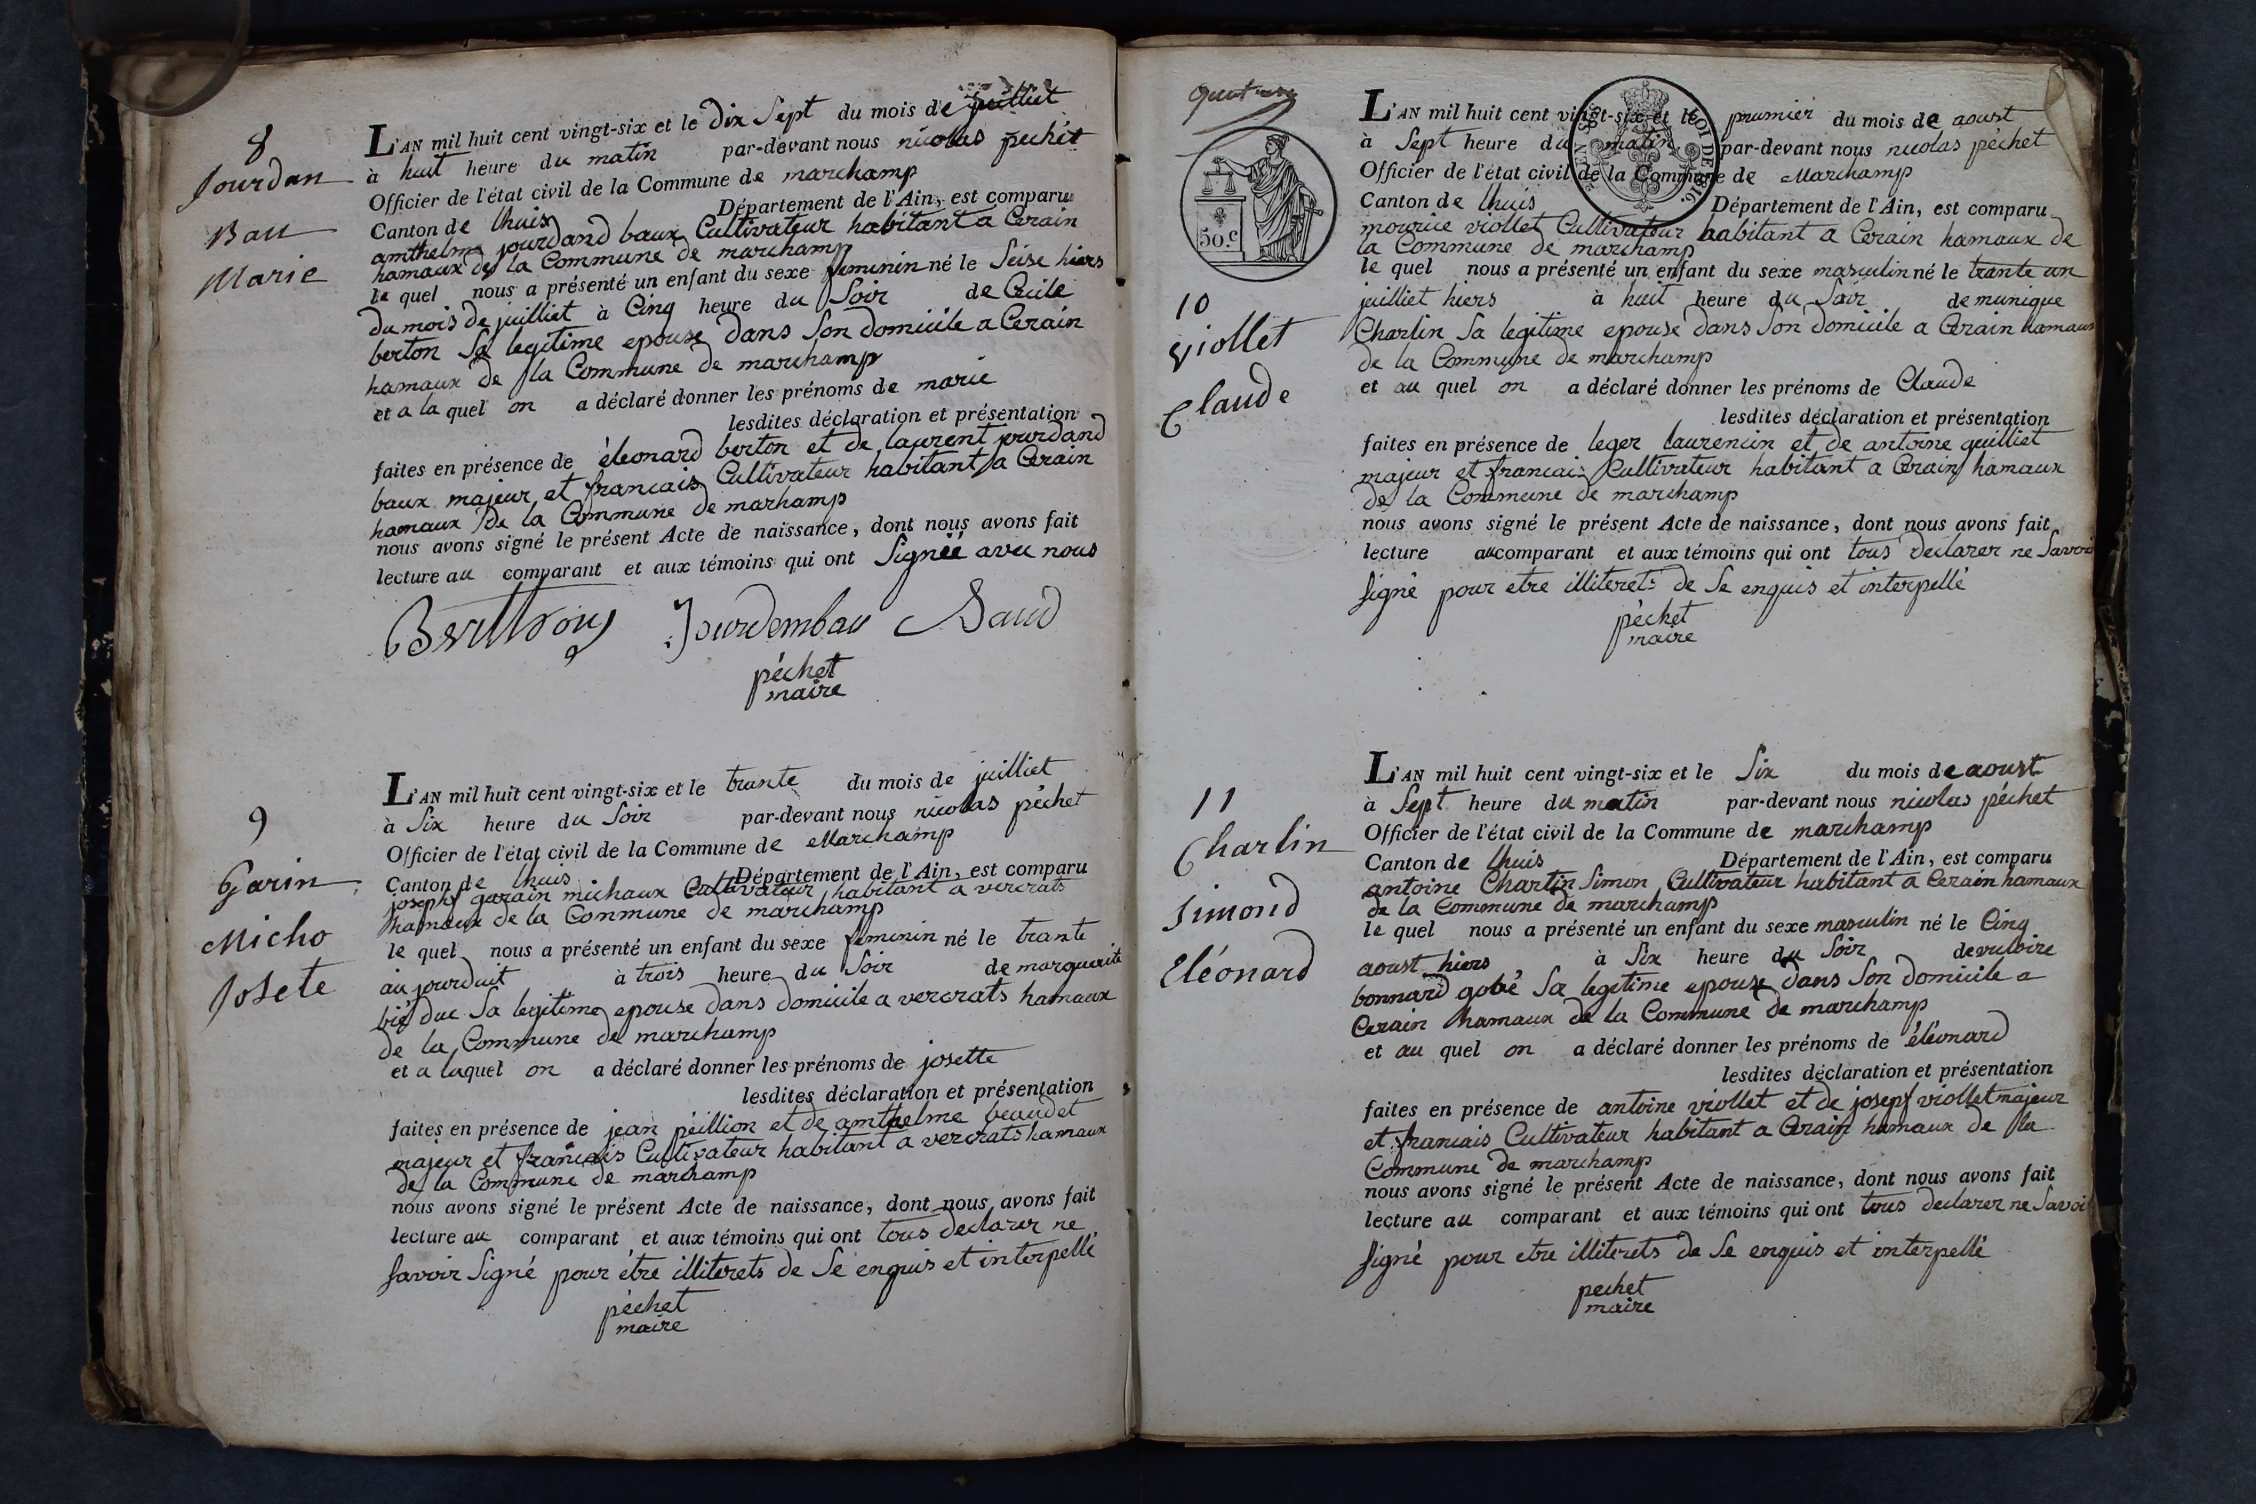 8
Jourdan
Bau
Marie
L'AN mil huit cent vingt-six et le dix Sept du mois de juilliet
à huit heure du matin par-devant nous nicolas péchet
Officier de l'état civil de la Commune de marchamp
Canton de lhuis Département de l'Ain, est comparu
amthelme jourdand baux Cultivateur habitant a Cerain
hamaux de la Commune de marchamp
le quel nous a présenté un enfant du sexe feminin né le Seise hiers
du mois de juilliet à Cinq heure du Soir de Cecile
berton Sa legitime epouse dans Son domicile a Cerain
hamaux de la Commune de marchamp
et a la quel on a déclaré donner les prénoms de marie
lesdites déclaration et présentation
faites en présence de éleonard berton et de laurent jourdand
baux majeur et francais Cultivateur habitant a Cerain
hamaux de la Commune de marhamp
nous avons signé le présent Acte de naissance, dont nous avons fait
lecture au comparant et aux témoins qui ont Signéé avec nous
Jourdembau Baud
péchet
maire
9
Garin
Micho
Josete
L'AN mil huit cent vingt-six et le trante du mois de juilliet
à Six heure du Soir par-devant nous nicolas péchet
Officier de l'état civil de la Commune de Marchamp
Canton de lhuis Département de l'Ain, est comparu
josepf garain michaux Cultivateur habitant a vercrats
hamaux de la Commune de marchamp
le quel nous a présenté un enfant du sexe feminin né le trante
au jourduit à trois heure du Soir de marguerite
bié duc Sa legitime epouse dans domicile a vercrats hamaux
de la Commune de marchamp
et a laquel on a déclaré donner les prénoms de josette
lesdites déclaration et présentation
faites en présence de jean péillion et de amthelme beaudet
majeur et francais Cultivateur habitant a vercrats hamaux
de la Commune de marchamp
nous avons signé le présent Acte de naissance, dont nous avons fait
lecture au comparant et aux témoins qui ont tous declarer ne
savoir Signé pour étre illiterets de Se enquis et interpellé
péchet
maire
50.C
LOI DE 1816.
10
Viollet
Claude
L'AN mil huit cent vingt-six et le prumiér du mois de aoust
à Sept heure du matin par-devant nous nicolas péchet
Officier de l'état civil de la Commune de Marchamp
Canton de lhuis Département de l'Ain, est comparu
mourice viollet Cultivateur habitant a Cerain hamaux de
la Commune de marchamp
le quel nous a présenté un enfant du sexe masculin né le trante un
juilliet hiers à huit heure du Soir de munique
Charlin Sa legitime epouse dans Son domicile a Cerain hamaux
de la Commune de marchamp
et au quel on a déclaré donner les prénoms de Claude
lesdites déclaration et présentation
faites en présence de leger laurencin et de antoine guilliet
majeur et francais Cultivateur habitant a Cerain hamaux
de la Commune de marchamp
nous avons signé le présent Acte de naissance, dont nous avons fait
lecture au comparant et aux témoins qui ont tous declarer ne Savoir
Signé pour etre illiterets de Se enquis et interpellé
péchet
maire
11
Charlin
Simond
Eléonard
L'AN mil huit cent vingt-six et le Six du mois de aoust
à Sept heure du matin par-devant nous nicolas péchet
Officier de l'état civil de la Commune de marchamp
Canton de lhuis Département de l'Ain, est comparu
antoine Charlin Simon Cultivateur habitant a Cerain hamaux
de la Commune de marchamp
le quel nous a présenté un enfant du sexe masculin né le Cinq
aoust hiers à Six heure du Soir de victoire
bonnard gobé Sa legitime epouse dans Son domicile a
Cerain hamaux de la Commune de marchamp
et au quel on a déclaré donner les prénoms de éléonard
lesdites déclaration et présentation
faites en présence de antoine viollet et de josepf viollet majeur
et francais Cultivateur habitant a Cerain hamaux de la
Commune de marchamp
nous avons signé le présent Acte de naissance, dont nous avons fait
lecture au comparant et aux témoins qui ont tous declarer ne Savoir
Signé pour etre illiterets de Se enquis et interpellé
pechet
maire